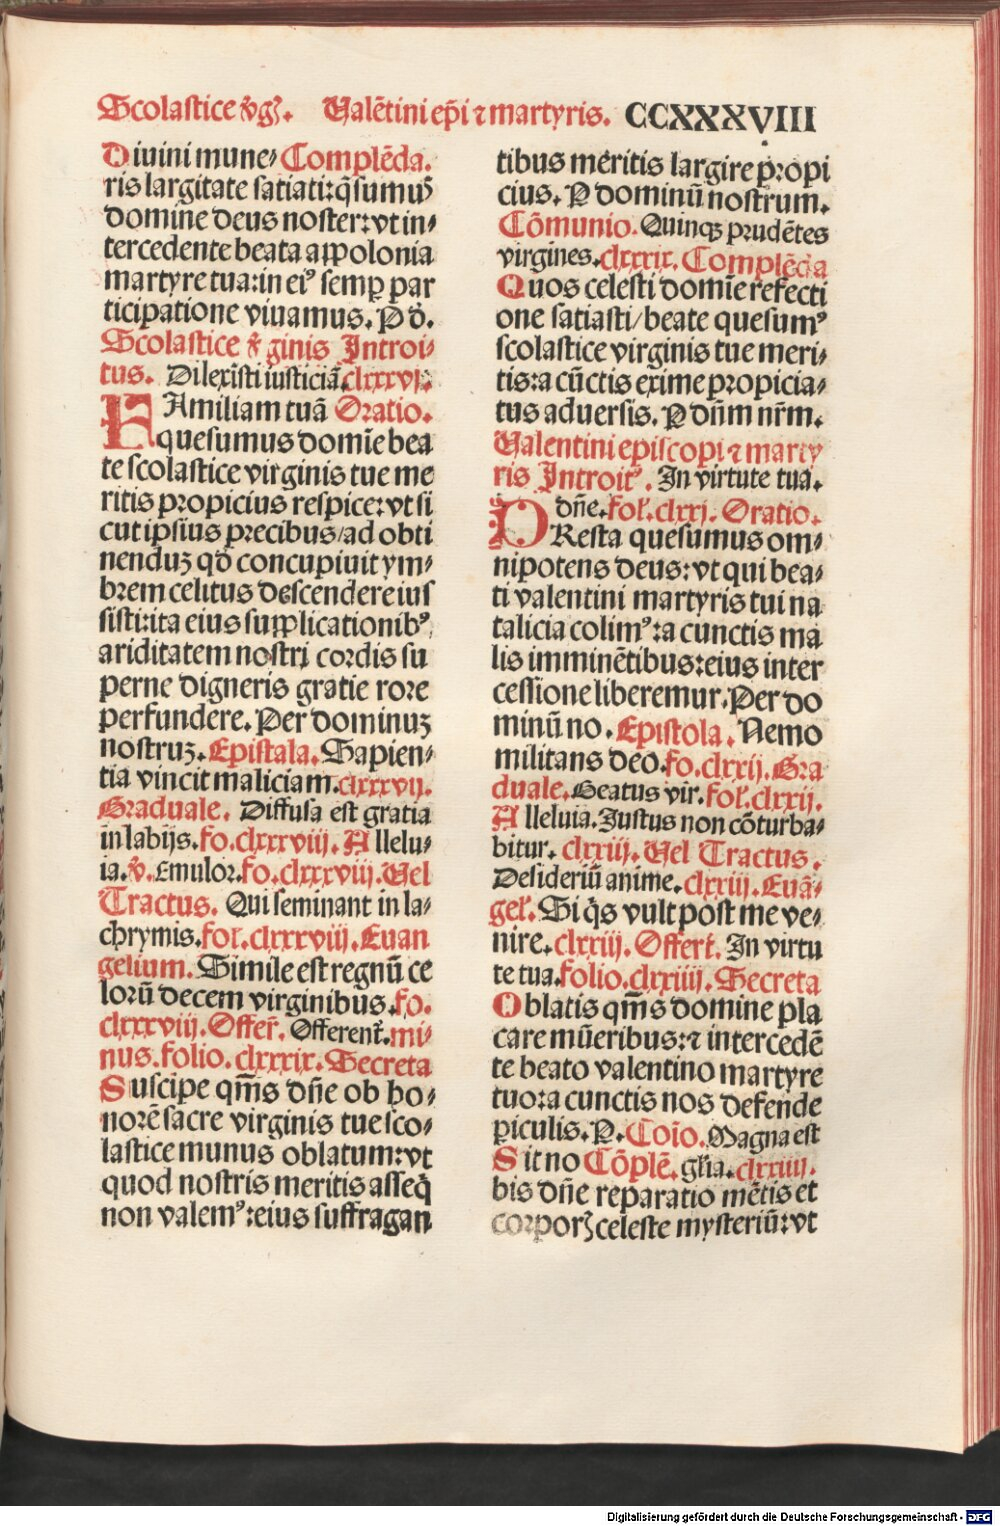 Scolastice v̄gꝭ. Valētini ep̄i ⁊ martyris. CCXXXVIII
Diuini mune⸗ Complēda.
ris largitate satiati: q̄sumꝰ
domine deus noster: vt in⸗
tercedente beata appolonia
martyre tua: in eiꝰ semꝑ par
ticipatione viuamus. P d̄.
Scolastice v̄ginis Introi⸗
tus. Dilexisti iusticiā. clxxxvj.
FAmiliam tuā Oratio.
quesumus domīe bea
te scolastice virginis tue me
ritis propicius respice: vt si
cut ipsius precibus/ad obti
nenduꝫ qd̄ concupiuit ym⸗
brem celitus descendere ius
sisti: ita eius supplicationibꝰ
ariditatem nostrj cordis su
perne digneris gratie rore
perfundere. Per dominuꝫ
nostruꝫ. Epistala. Sapien⸗
tia vincit maliciam. clxxxvij.
Graduale. Diffusa est gratia
in labijs. fo. clxxxviij. Allelu⸗
ia. v̄. Emulor. fo. clxxxviij. Vel
Tractus. Qui seminant in la⸗
chrymis. fol̄. clxxxviij. Euan
gelium. Simile est regnū ce
lorū decem virginibus. fo.
clxxxviij. Offer̄. Offerent̄. mi⸗
nus. folio. clxxxix. Secreta
Suscipe qm̄s dn̄e ob ho⸗
norē sacre virginis tue sco⸗
lastice munus oblatum: vt
quod nostris meritis asseq̄
non valemꝰ: eius suffragan
tibus meritis largire propi
cius. P dominū nostrum.
Cōmunio. Quinqꝫ prudētes
virgines. clxxxix. Complēda
Quos celesti domīe refecti
one satiasti/beate quesumꝰ
scolastice virginis tue meri⸗
tis: a cūctis exime propicia⸗
tus aduersis. P dn̄m nr̄m.
Valentini episcopi ⁊ marty
ris Introitꝰ. In virtute tua.
dn̄e. fol̄. clxxj. Oratio.
PResta quesumus om⸗
nipotens deus: vt qui bea⸗
ti valentini martyris tui na
talicia colimꝰ: a cunctis ma
lis imminētibus: eius inter
cessione liberemur. Per do
minū no. Epistola. Nemo
militans deo. fo. clxxij. Gra
duale. Beatus vir. fol̄. clxxij.
Alleluia. Iustus non cōturba⸗
bitur. clxxiij. Vel Tractus.
Desideriū anime. clxxiij. Euā⸗
gel̄. Si q̄s vult post me ve⸗
nire. clxxiij. Offert̄. In virtu
te tua. folio. clxxiiij. Secreta
Oblatis qm̄s domine pla
care mūeribus: ⁊ intercedē
te beato valentino martyre
tuo: a cunctis nos defende
ꝑiculis. P. Coīo. Magna est
Sit no Cōplē. gl̄ia. clxxiiij.
bis dn̄e reparatio mētis et
corporꝫ celeste mysteriū: vt
Digitalisierung gefördert durch die Deutsche Forschungsgemeinschaft - DFG